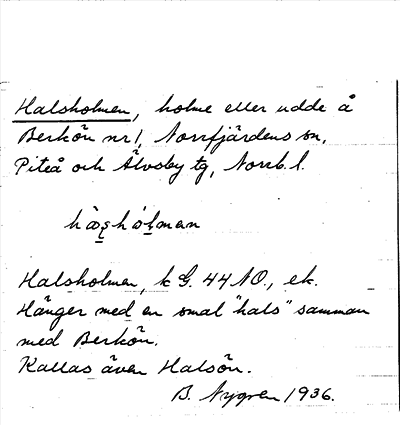 Halsholmen, holme eller udde å
Berkön nr 1, Norrfjärdens sn,
Piteå och Älvsby tg, Norrb. l.
Halsholmen, k G. 44 NO., ek.
Hänger med en smal "hals" samman
med Berkön.
Kallas även Halsön.
B. Nygren 1936.